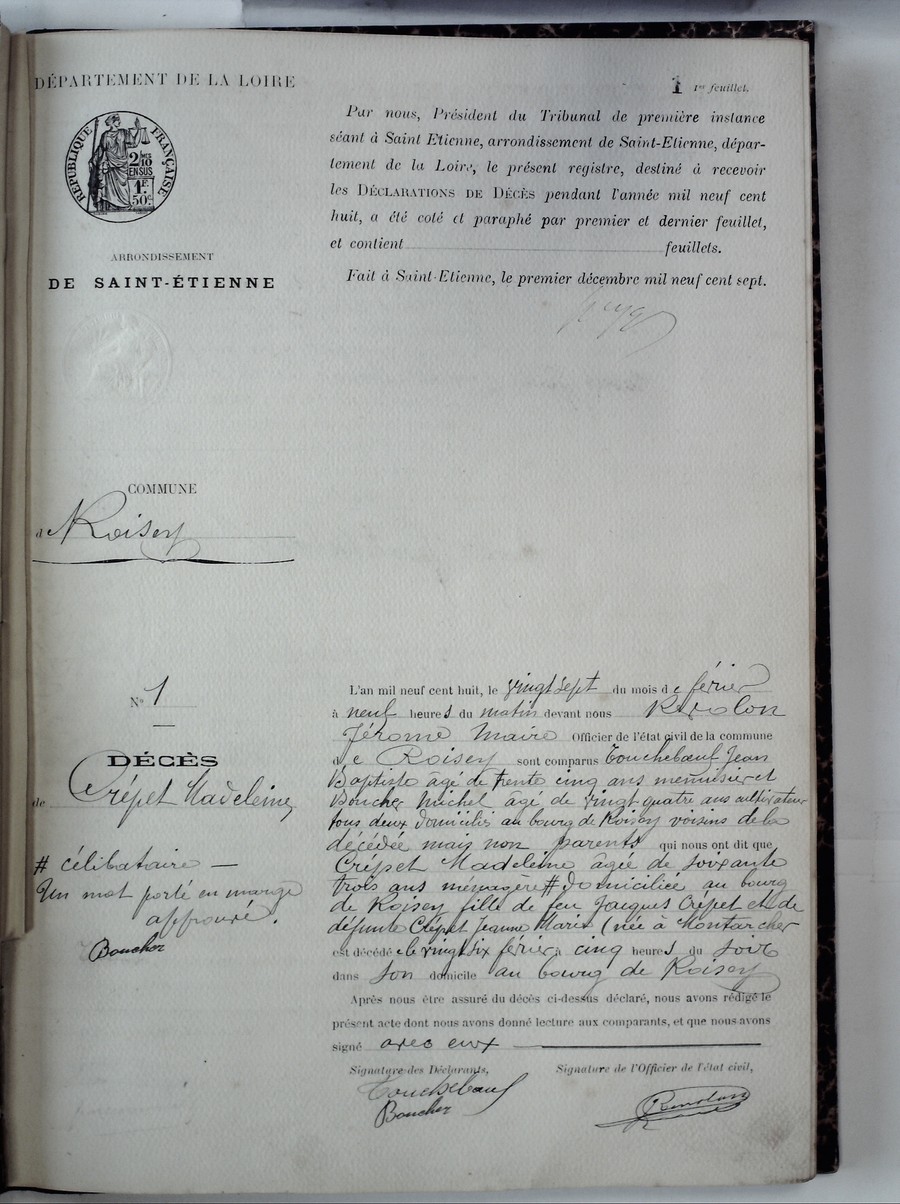 DÉPARTEMENT DE LA LOIRE
RÉPUBLIQUE FRANÇAISE
2/10
EN SUS
1F.
50c
ARRONDISSEMENT
DE SAINT-ÉTIENNE
1 1er feuillet.
Par nous, Président du Tribunal de première instance
séant à Saint Etienne, arrondissement de Saint-Etienne, dépar-
tement de la Loire, le présent registre, destiné à recevoir
les DÉCLARATIONS DE DÉCÈS pendant l'année mil neuf cent
huit, a été coté et paraphé par premier et dernier feuillet,
et contient feuillets.
Fait à Saint-Etienne, le premier décembre mil neuf cent sept.
COMMUNE
de Roisey
N° 1
DÉCÈS
de Crépet Madeleine
# célibataire —
Un mot porté en marge
approuvé.
Boucher
L'an mil neuf cent huit, le vingt sept du mois de férier
à neuf heures du matin devant nous
Jérome Maire Officier de l'état civil de la commune
de Roisey sont comparus Touchebœuf Jean
Baptiste âgé de trente cinq ans menuisier et
Boucher Michel âgé de vingt quatre ans cultivateur
tous deux domiciliés au bourg de Roisey voisins de la
décédée mais non parents qui nous ont dit que
Crépet Madeleine âgée de soixante
trois ans ménagère # domiciliée au bourg
de Roisey fille de feu Jacques Crépet et de
défunte Crépet Jeanne Marie (née à Montarcher
est décédée le vingt six férier à cinq heures du soir
dans son domicile au bourg de Roisey
Après nous être assuré du décès ci-dessus déclaré, nous avons rédigé le
présent acte dont nous avons donné lecture aux comparants, et que nous avons
signé avec eux
Signature des Déclarants,
Signature de l'Officier de l'état civil,
Touchebœuf
Boucher